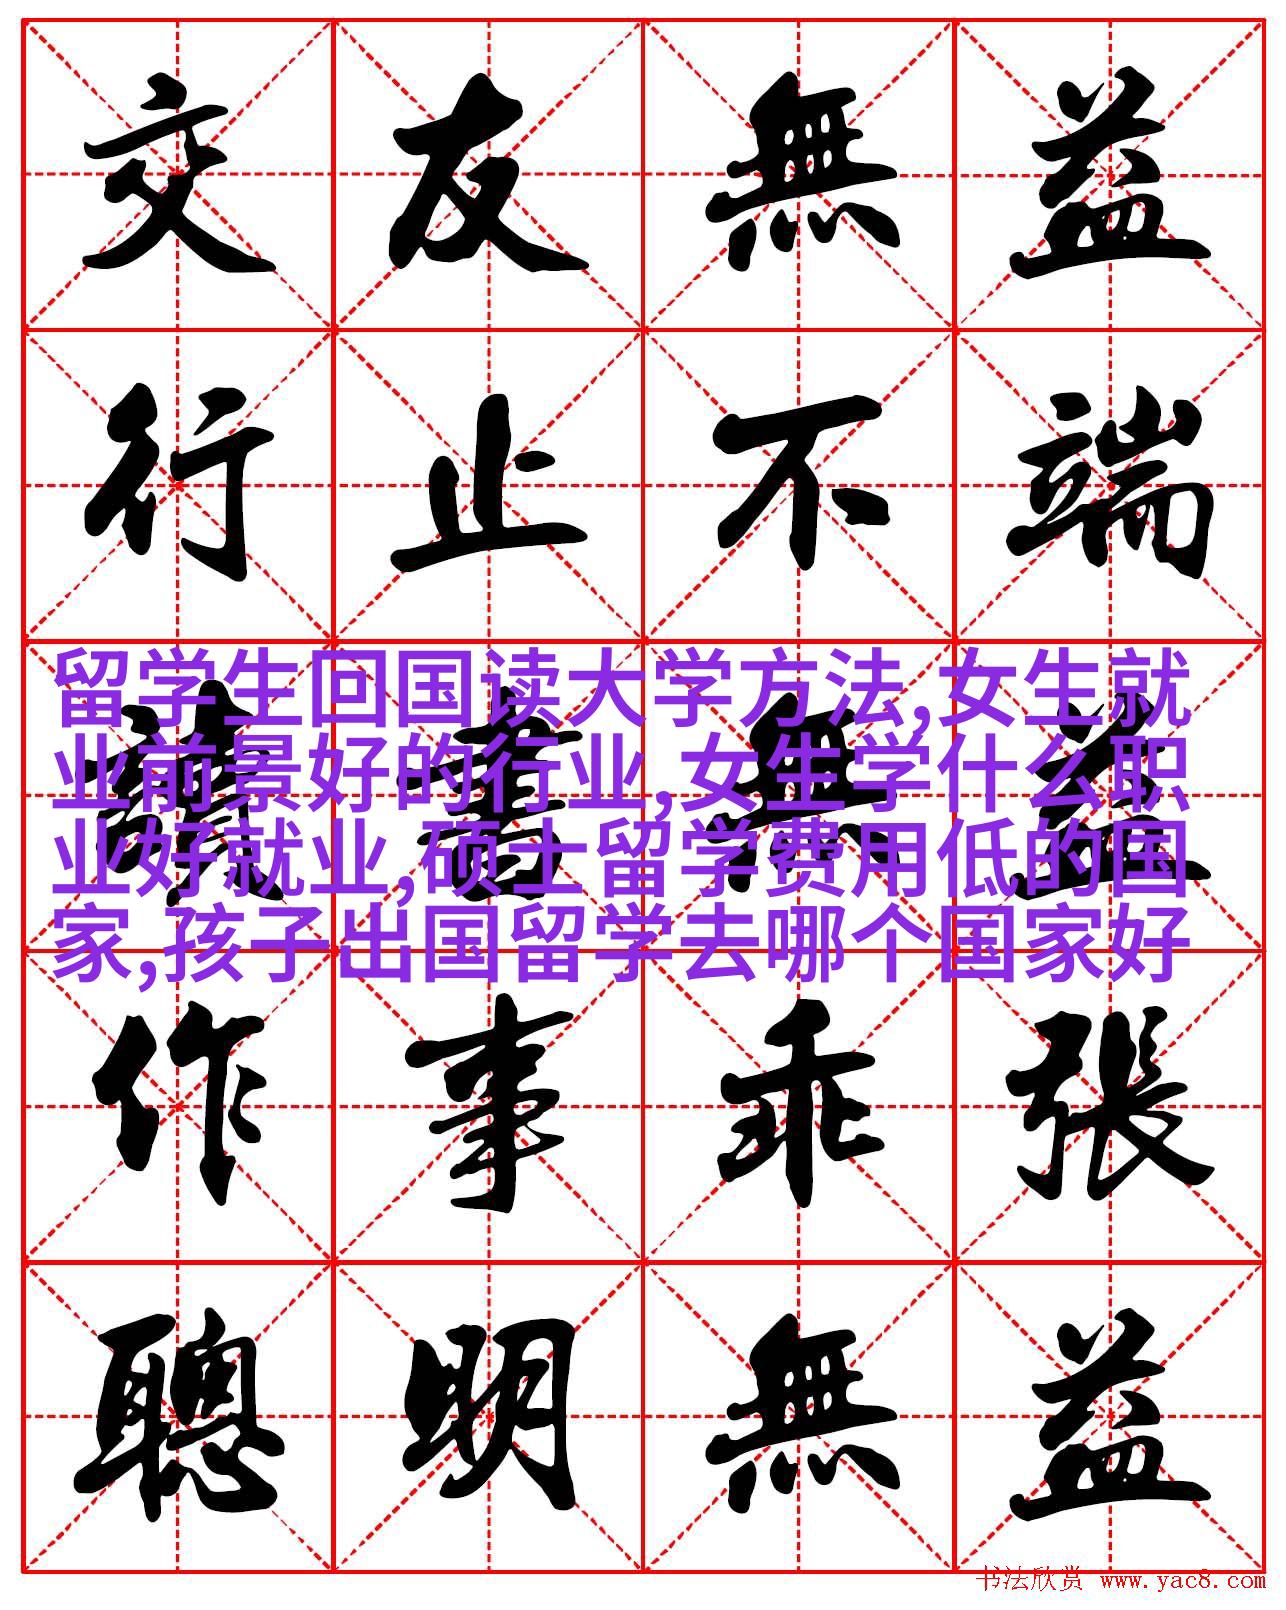 交友無益
行止不端
讀書無益
留学生回国读大学方法,女生就
业前景好的行业,女生学什么职
业好就业,硕士留学费用低的国
家,孩子出国留学去哪个国家好
作事乖張
聰明無益
书法欣赏 www.yac8.com